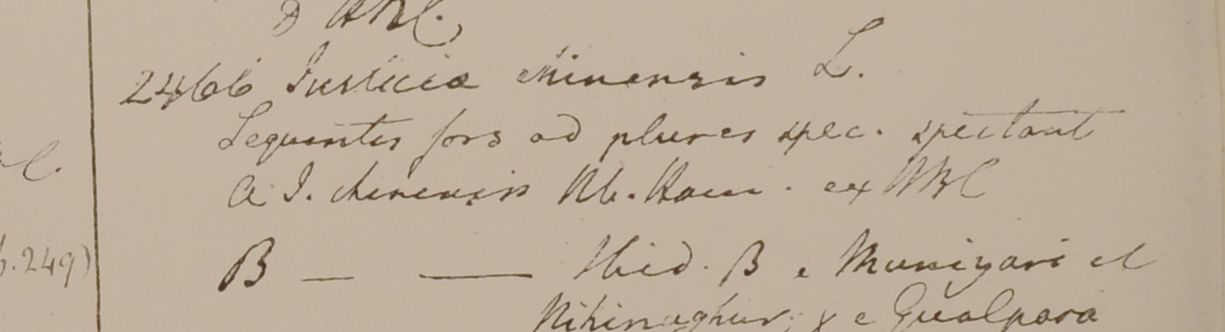 D HBC.
2466 Justicia chinensis L.
Sequentes fors ad plures spec. spectant
a J. chinensis Hb. Ham. ex HBC
C.
B — — Ibid. β e Munigari et
p. 249)
Nihinaghur, γ e Gualpara